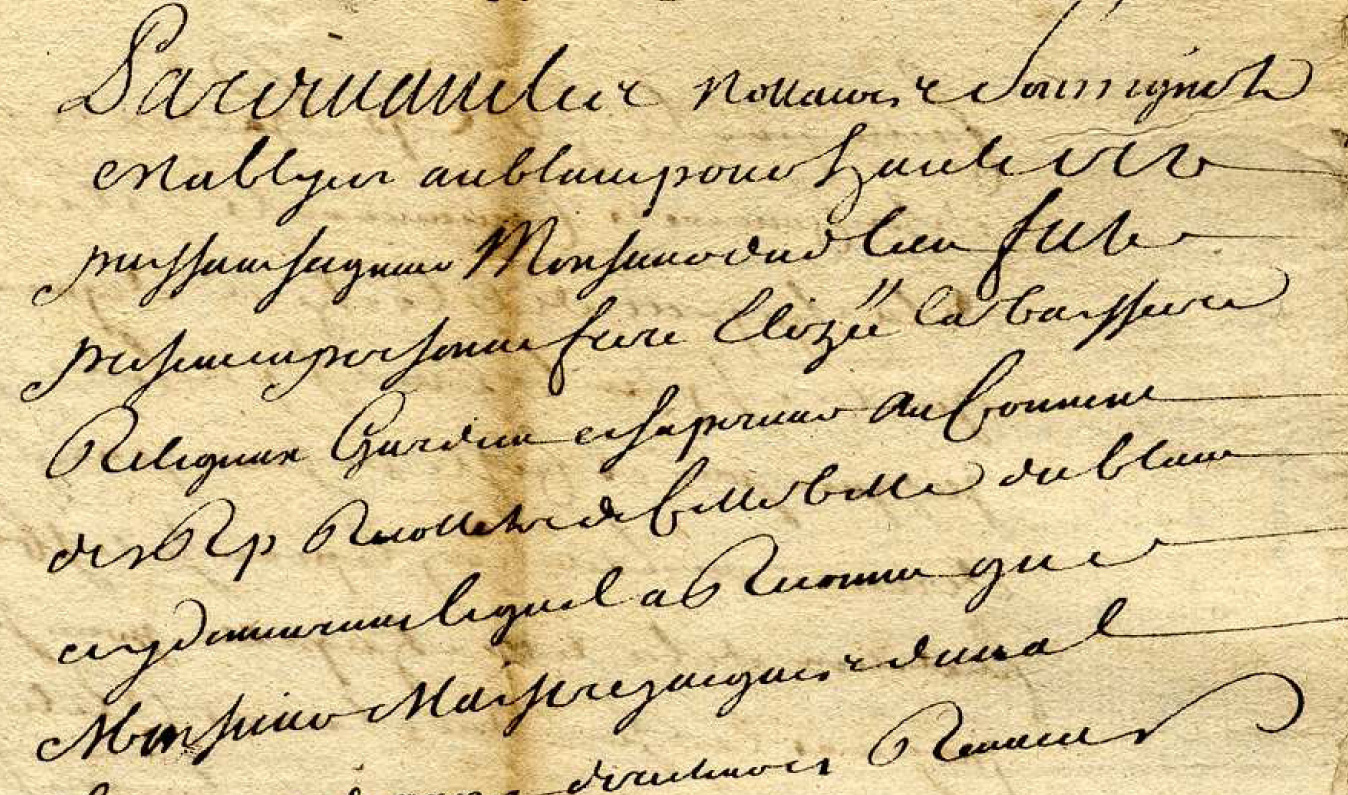 Pardevant les nottaires Soussignéz
establyes au blanc pour haut et
puissant seigneur Monseigneur dud lieu fut
present en personne frere Elizée Labaissiere
Religieux Gardien et superieur au Couvent
des Rp Recollets de cette ville du blanc
en y demeurant lequel a Reconnu que
Monsieur Maistre jacques duval
Receveur